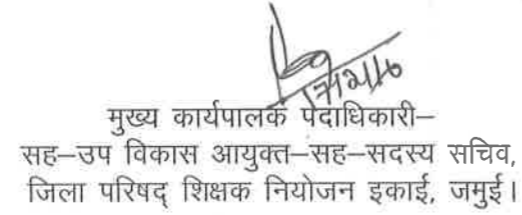 मुख्य कार्यपालक पदाधिकारी–
सह–उप विकास आयुक्त–सह–सदस्य सचिव,
जिला परिषद् शिक्षक नियोजन इकाई, जमुई।